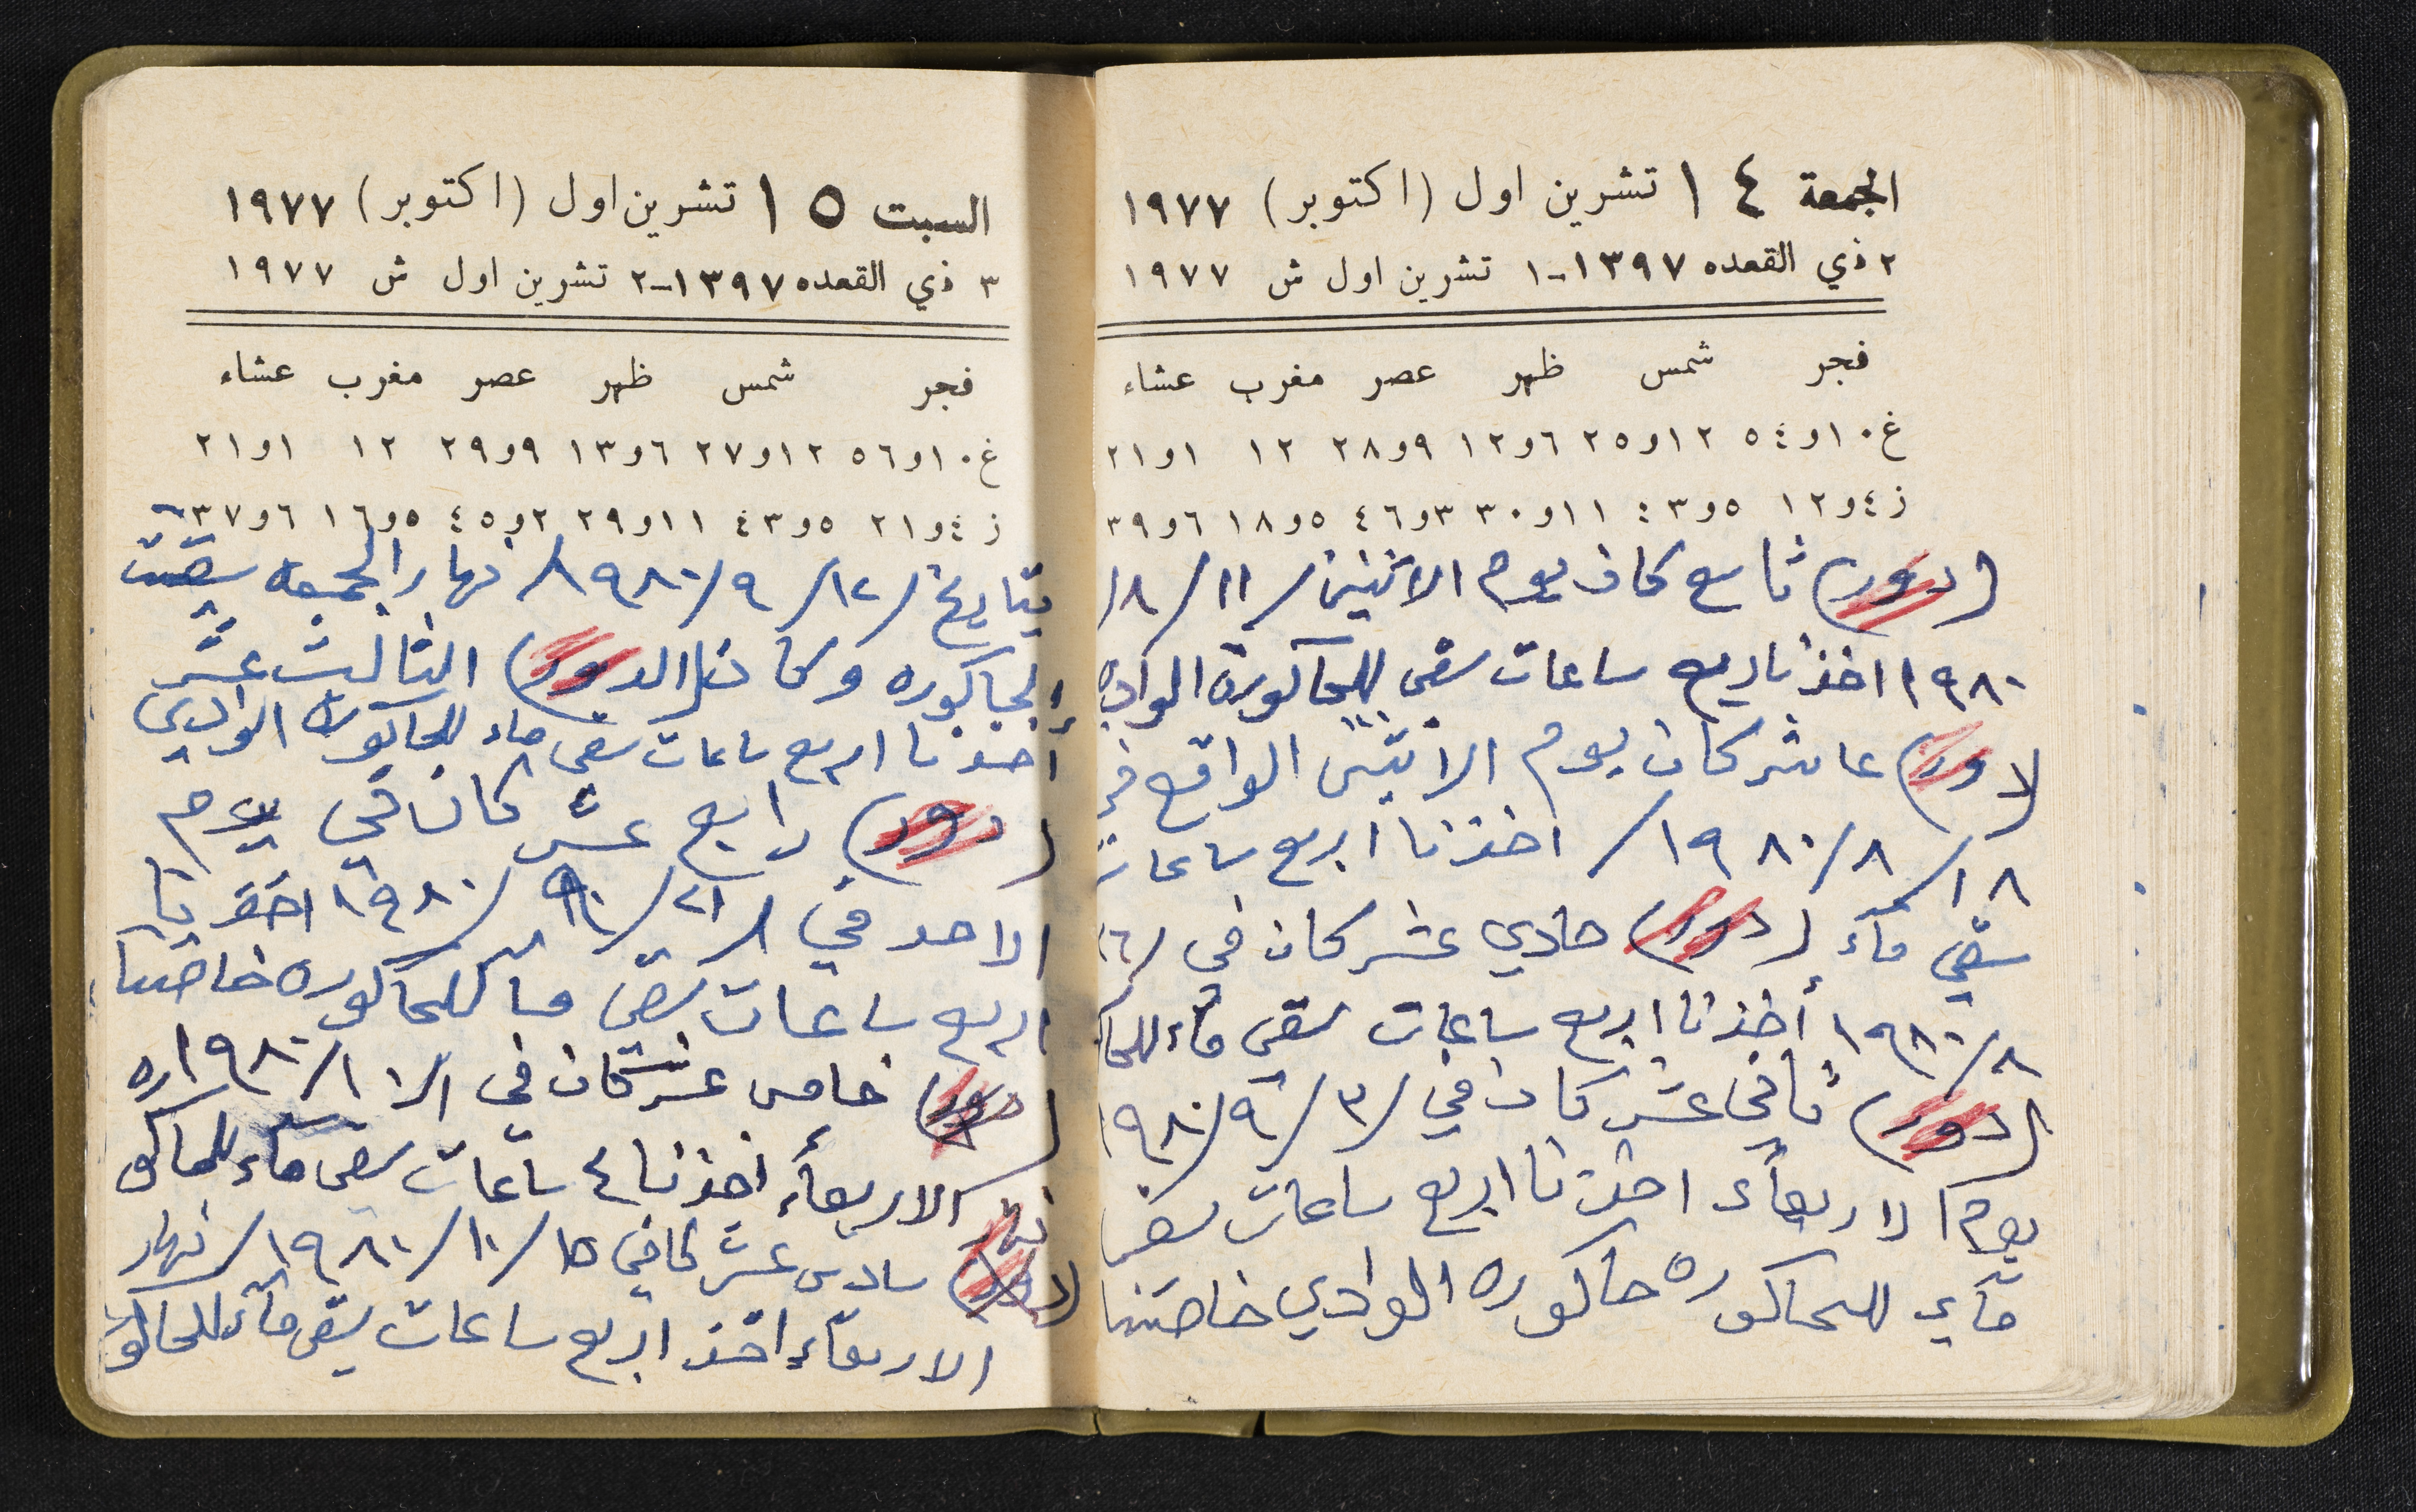 الجمعة ١٤ تشرين اول (اكتوبر) ١٩٧٧
٢ ذي القعده ١٣٩٧-١ تشرين اول ش ١٩٧٧
فجر شمس ظهر عصر مغرب عشاء
غ ١٠و٥٤ ١٢و٢٥ ٦و١٢ ٩و٢٨ ١٢ ١و٢١
ز ٤و١٢ ٥و٤٣ ١١و٣٠ ٣و٤٦ ٥و١٨ ٦و٣٩
(دور) تاسع كان يوم الاثنين /١١/٨/
١٩٨٠ اخذنا اربع ساعات سقي للحاكورة الوادي
(دور) عاشر كان يوم الاثنين الواقع في
١٨/٨/١٩٨٠/ اخذنا اربع ساعات
سقي مآء (دور) حادي عشر كان في /٢٦
/٨/١٩٨٠ أخذنا اربع ساعات سقي مآء للحاكو
(دور) ثاني عشر كان في /٣/٩/١٩٨٠
يوم الاربعاء اخذنا اربع ساعات سقي
مآء للحاكوره حاكوره الوادي خاصتنا
السبت ١٥ تشرين اول (اكتوبر) ١٩٧٧
٣ ذي القعده ١٣٩٧-٢ تشرين اول ش ١٩٧٧
فجر شمس ظهر عصر مغرب عشاء
غ ١٠و٥٦ ١٢و٢٧ ٦و١٣ ٩و٢٩ ١٢ ١و٢١
ز ٤و٢١ ٥و٤٣ ١١و٢٩ ٢و٤٥ ٥و١٦ ٦و٣٧
بتاريخ /١٢/٩/١٩٨٠/ نهار الجمعه سقيت
الحاكوره وكان (الدور) الثالث عشر
أخذنا اربع ساعات سقي ماء للحاكورة الوادي
(دور) رابع عشر كان في يوم
الاحد في /٢١/٩/١٩٨٠ اخذنا
اربع ساعات سقي مآ للحاكوره خاصتنا
(دور) خامس عشر كان في ١/١٠/١٩٨٠
نهار الاربعاء اخذنا ٤ ساعات سقي مآء للحاكوره
(دور) سادس عشر كا في ١٥/١٠/١٩٨٠/ نهار
الاربعآء اخذ اربع ساعات سقي مآء للحاكو